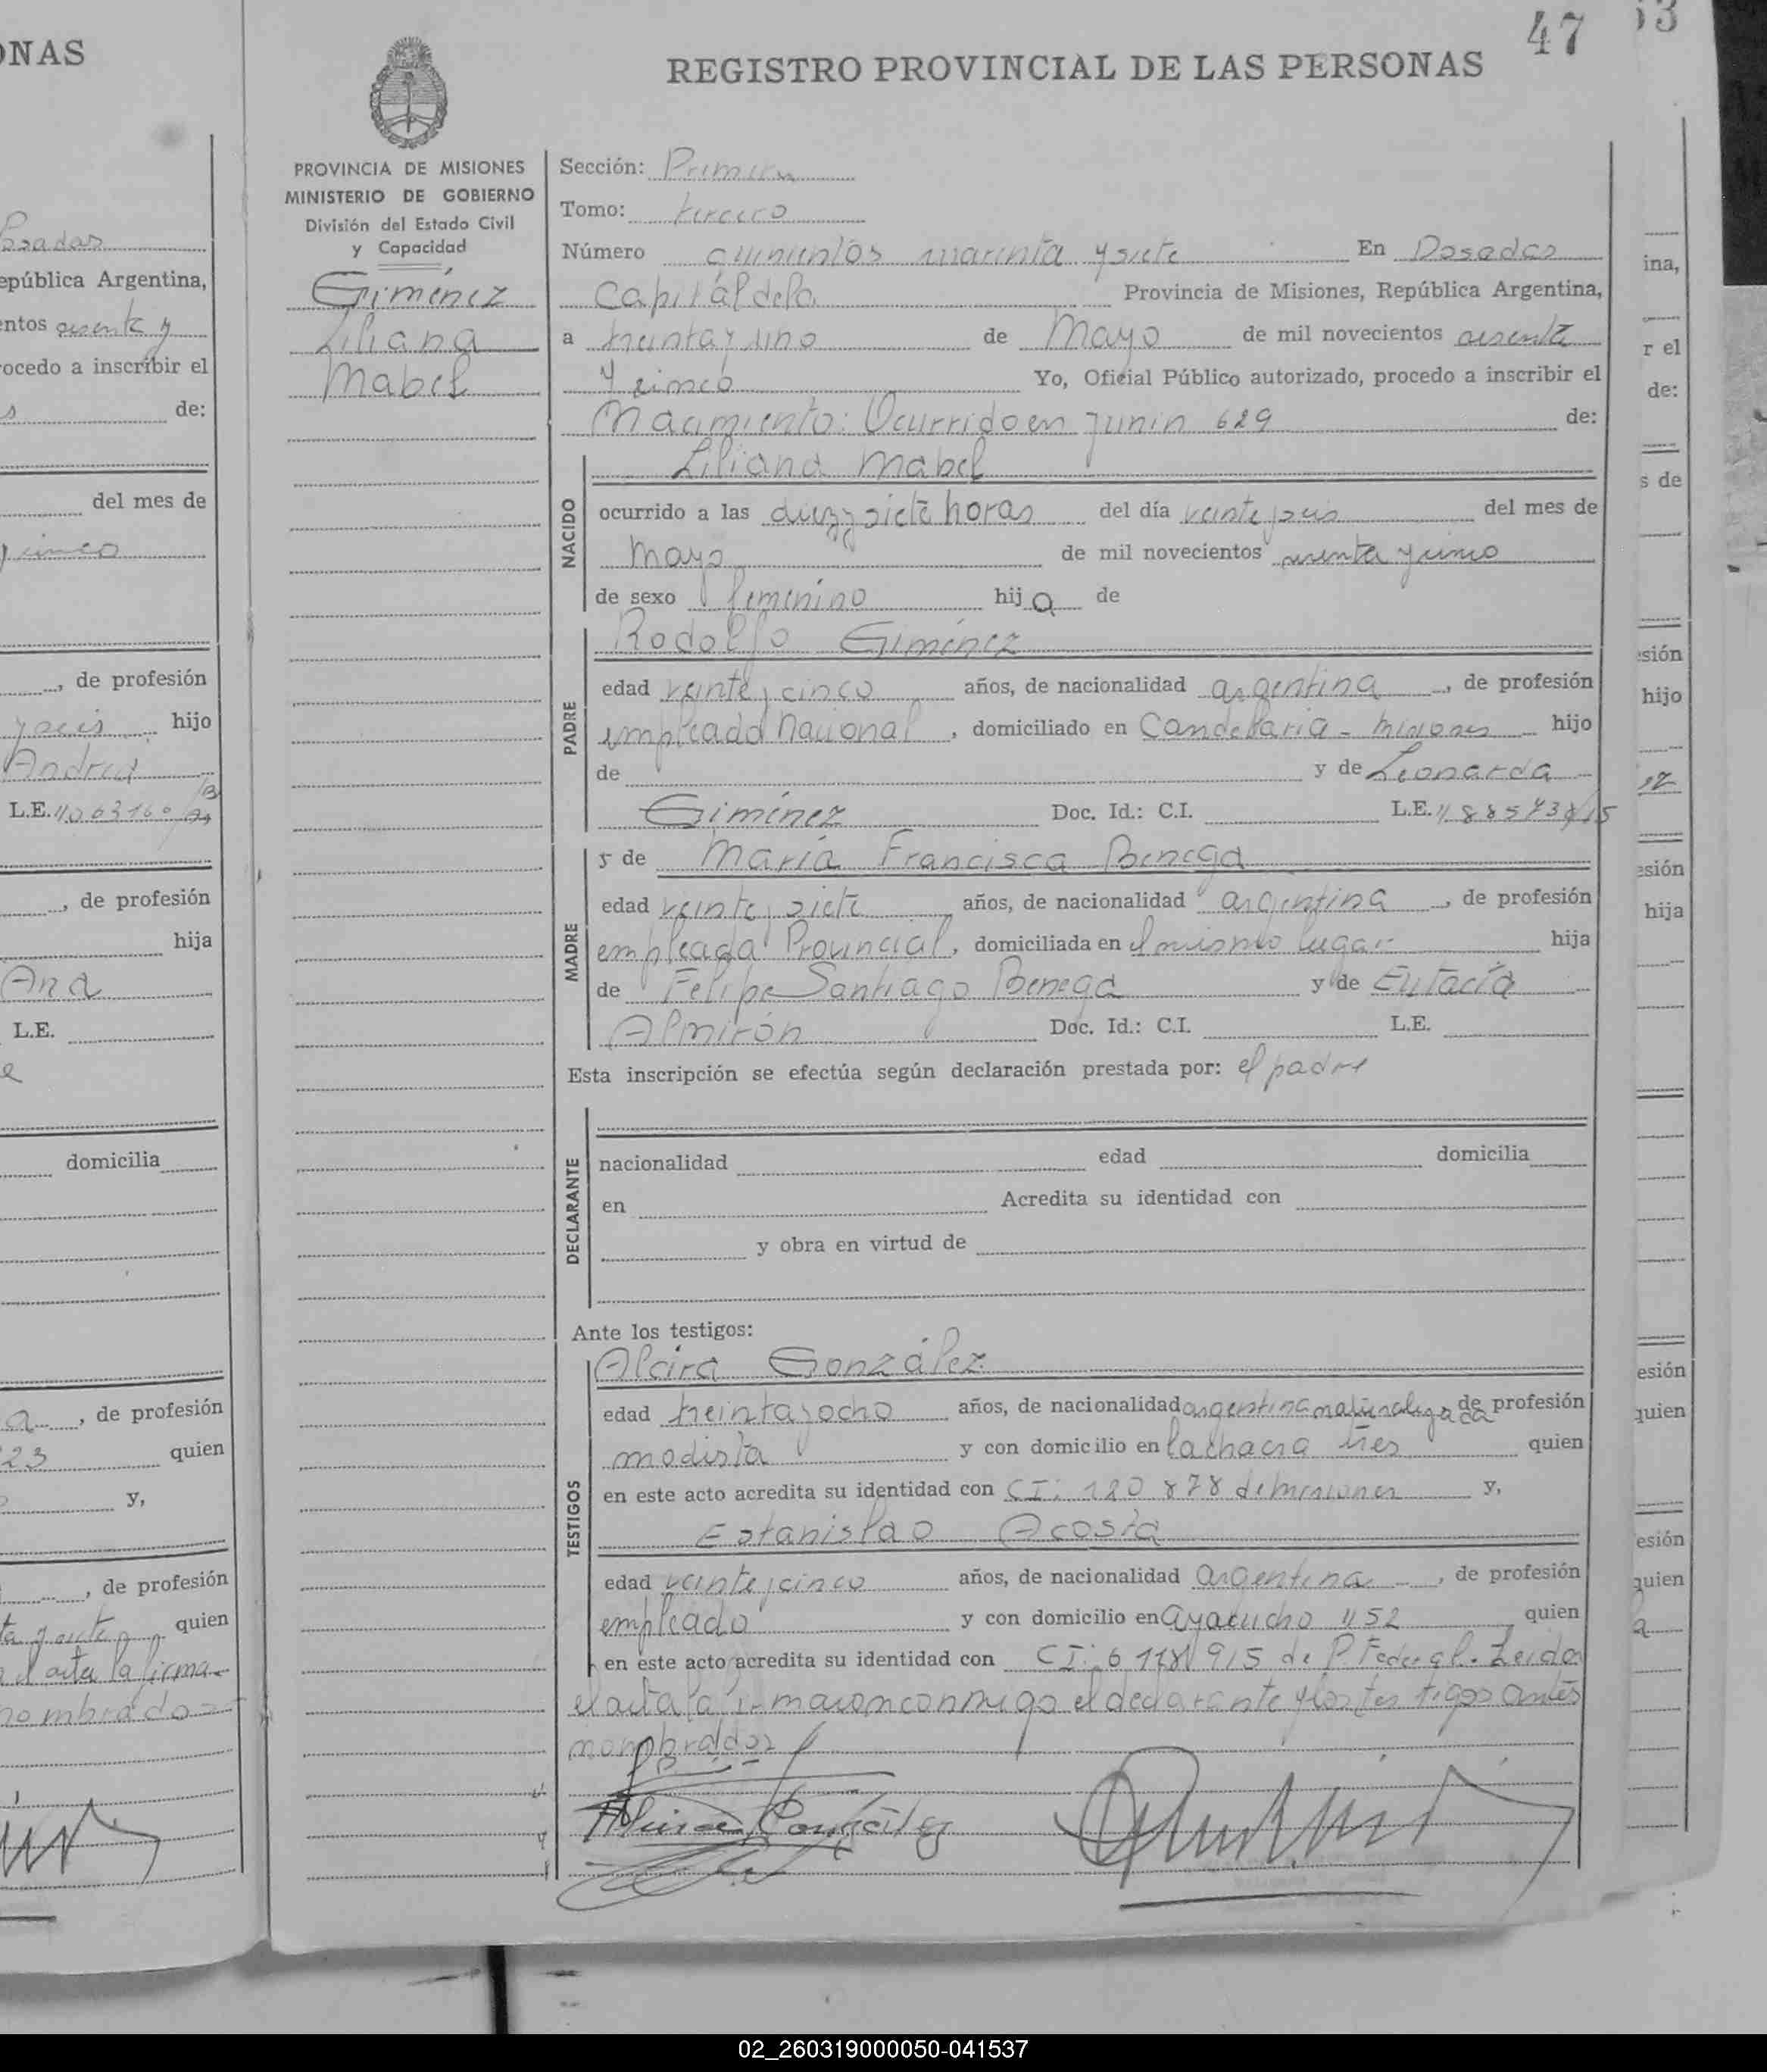 ONAS
Posadas
epública Argentina,
entos
rocedo a inscribir el
de:
del mes de
y cinco
, de profesión
y seis hijo
Andrea
L.E.
, de profesión
hija
Ana
L.E.
domicilia
a , de profesión
23 quien
y,
, de profesión
quien
el acta la firma
nombrados
47
53
REGISTRO PROVINCIAL DE LAS PERSONAS
PROVINCIA DE MISIONES
MINISTERIO DE GOBIERNO
División del Estado Civil
y Capacidad
Giménez
Liliana
Mabel
Sección: Primera
Tomo: tercero
Número quinientos cuarenta y siete En Posadas
Capital de la Provincia de Misiones, República Argentina,
a treinta y uno de Mayo de mil novecientos sesenta
y cinco Yo, Oficial Público autorizado, procedo a inscribir el
Nacimiento: Ocurrido en Junin 629 de:
Liliana Mabel
NACIDO
ocurrido a las diez y siete horas del día veinte y seis del mes de
Mayo de mil novecientos sesenta y cinco
de sexo femenino hija de
PADRE
Rodolfo Giménez
edad veinte y cinco años, de nacionalidad argentina, de profesión
empleado nacional, domiciliado en Candelaria - Misiones hijo
de y de Leonarda
Giménez Doc. Id.: C.I. L.E.
MADRE
y de María Francisca Benega
edad veinte y siete años, de nacionalidad argentina, de profesión
empleada Provincial, domiciliada en el mismo lugar hija
de Felipe Santiago Benega y de Eutacia
Almirón Doc. Id.: C.I. L.E.
Esta inscripción se efectúa según declaración prestada por: el padre
DECLARANTE
nacionalidad edad domicilia
en Acredita su identidad con
y obra en virtud de
Ante los testigos:
TESTIGOS
Alcira González
edad treinta y ocho años, de nacionalidad argentina naturalizada de profesión
modista y con domicilio en la chacra tres quien
en este acto acredita su identidad con CI: 120 878 de Misiones y,
Estanislao Acosta
edad veinte y cinco años, de nacionalidad argentina, de profesión
empleado y con domicilio en Ayacucho 1152 quien
en este acto acredita su identidad con CI: 6 118 915 de P. Federal. Leida
el acta la firmaron conmigo el declarante y los testigos antes
nombrados
Alcira González
ina,
r el
de:
s de
esión
hijo
esión
hija
esión
quien
esión
quien
02_260319000050-041537